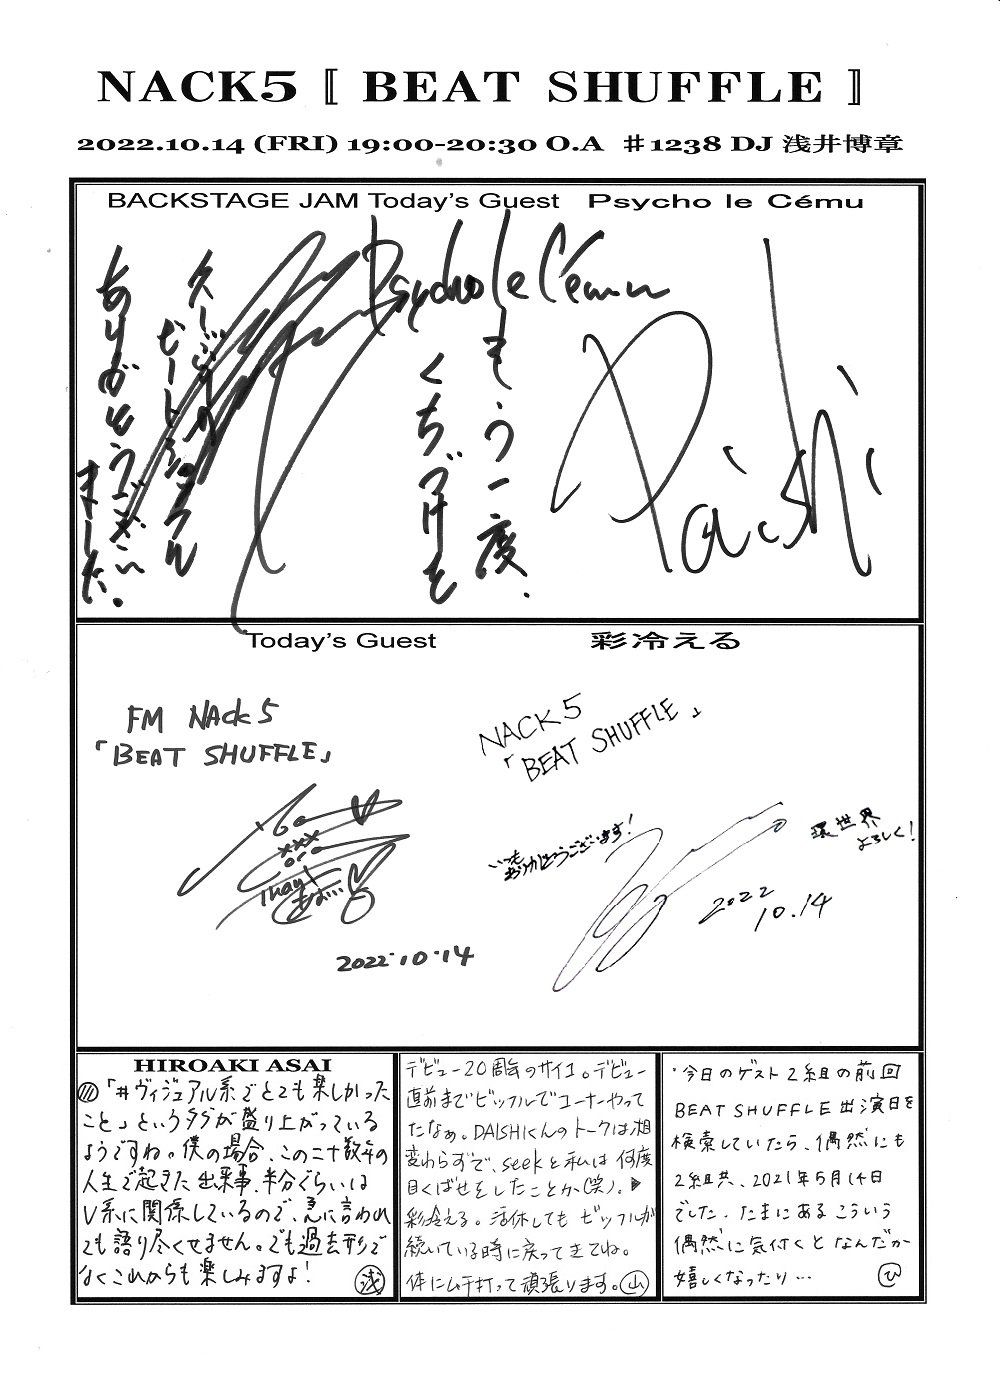 NACK5 〚 BEAT SHUFFLE 〛
2022.10.14 (FRI) 19:00-20:30 O.A ♯1238 DJ 浅井博章
BACKSTAGE JAM Today's Guest Psycho le Cému
Psycho le Cému
もう一度、
くちづけを
Daishi
ビートシャッフル
ありがとうござい
ました。
Today's Guest 彩冷える
FM NAck5
「BEAT SHUFFLE」
2022.10.14
NACK5
「BEAT SHUFFLE」
いつも
ありがとうございます!
よろしく!
2022
10.14
HIROAKI ASAI
「#ヴィジュアル系でとても楽しかった
こと」というタグが盛り上がっている
ようですね。僕の場合、この二十数年の
人生で起きた出来事、半分ぐらいは
V系に関係しているので、急に言われ
ても語り尽くせません。でも過去形で
なくこれからも楽しみますよ! 浅
デビュー20周年のサイコ。デビュー
直前までビッフルでコーナーやって
たなぁ。DAISHIくんのトークは相
変わらずで、seekと私は何度
目くばせをしたことか(笑)。▶
彩冷える。活休しても ビッフルが
続いている時に戻ってきてね。
体にムチ打って頑張ります。山
・今日のゲスト2組の前回
BEAT SHUFFLE出演日を
検索していたら、偶然にも
2組共、2021年5月14日
でした。たまにあるこういう
偶然に気付くとなんだか
嬉しくなったり… ひ